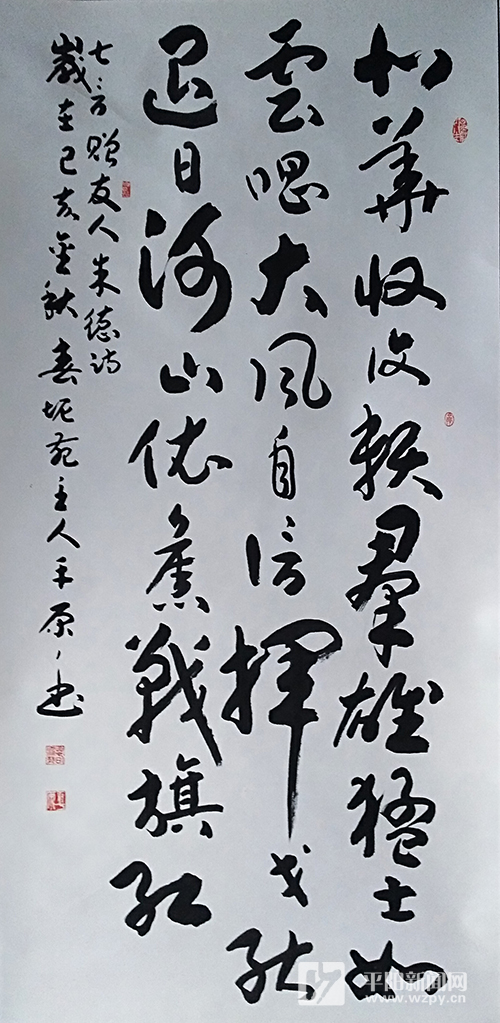 北華收復賴羣雄猛士如
雲唱大風自信揮戈能
退日河山依舊戰旗紅
七言贈友人朱德詩
歲在己亥金秋春坭苑主人平原書
平阳新闻网
www.wzpy.cn